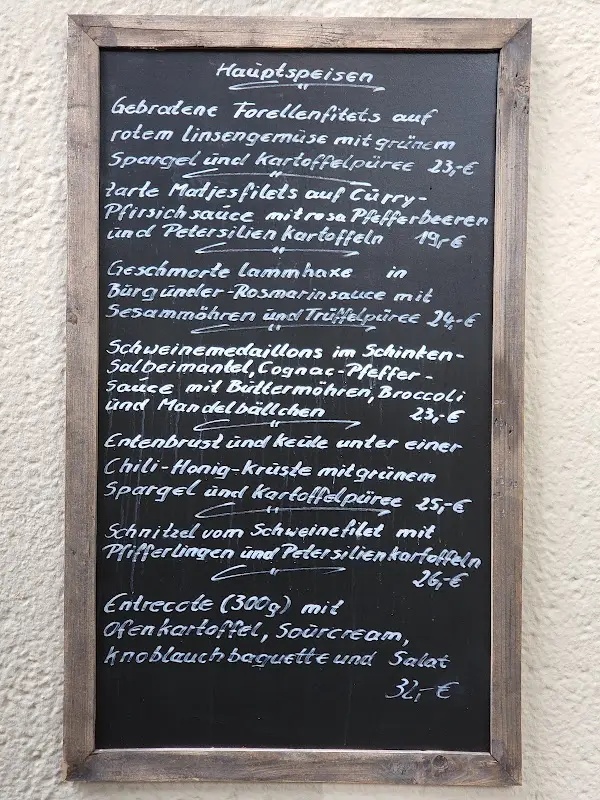 Hauptspeisen
Gebratene Forellenfilets auf
rotem Linsengemüse mit grünem
Spargel und Kartoffelpüree 23,-€
zarte Matjesfilets auf Curry-
Pfirsichsauce mit rosa Pfefferbeeren
und Petersilien Kartoffeln 19,-€
Geschmorte Lammhaxe in
Burgunder-Rosmarinsauce mit
Sesammöhren und Trüffelpüree 24,-€
Schweinemedaillons im Schinken-
Salbeimantel, Cognac-Pfeffer-
sauce mit Buttermöhren, Broccoli
und Mandelbällchen 23,-€
Entenbrust und Keule unter einer
Chili-Honig-Kruste mit grünem
Spargel und Kartoffelpüree 25,-€
Schnitzel vom Schweinefilet mit
Pfifferlingen und Petersilienkartoffeln
26,-€
Entrecote (300g) mit
Ofenkartoffel, Sourcream,
Knoblauchbaguette und Salat
32,-€